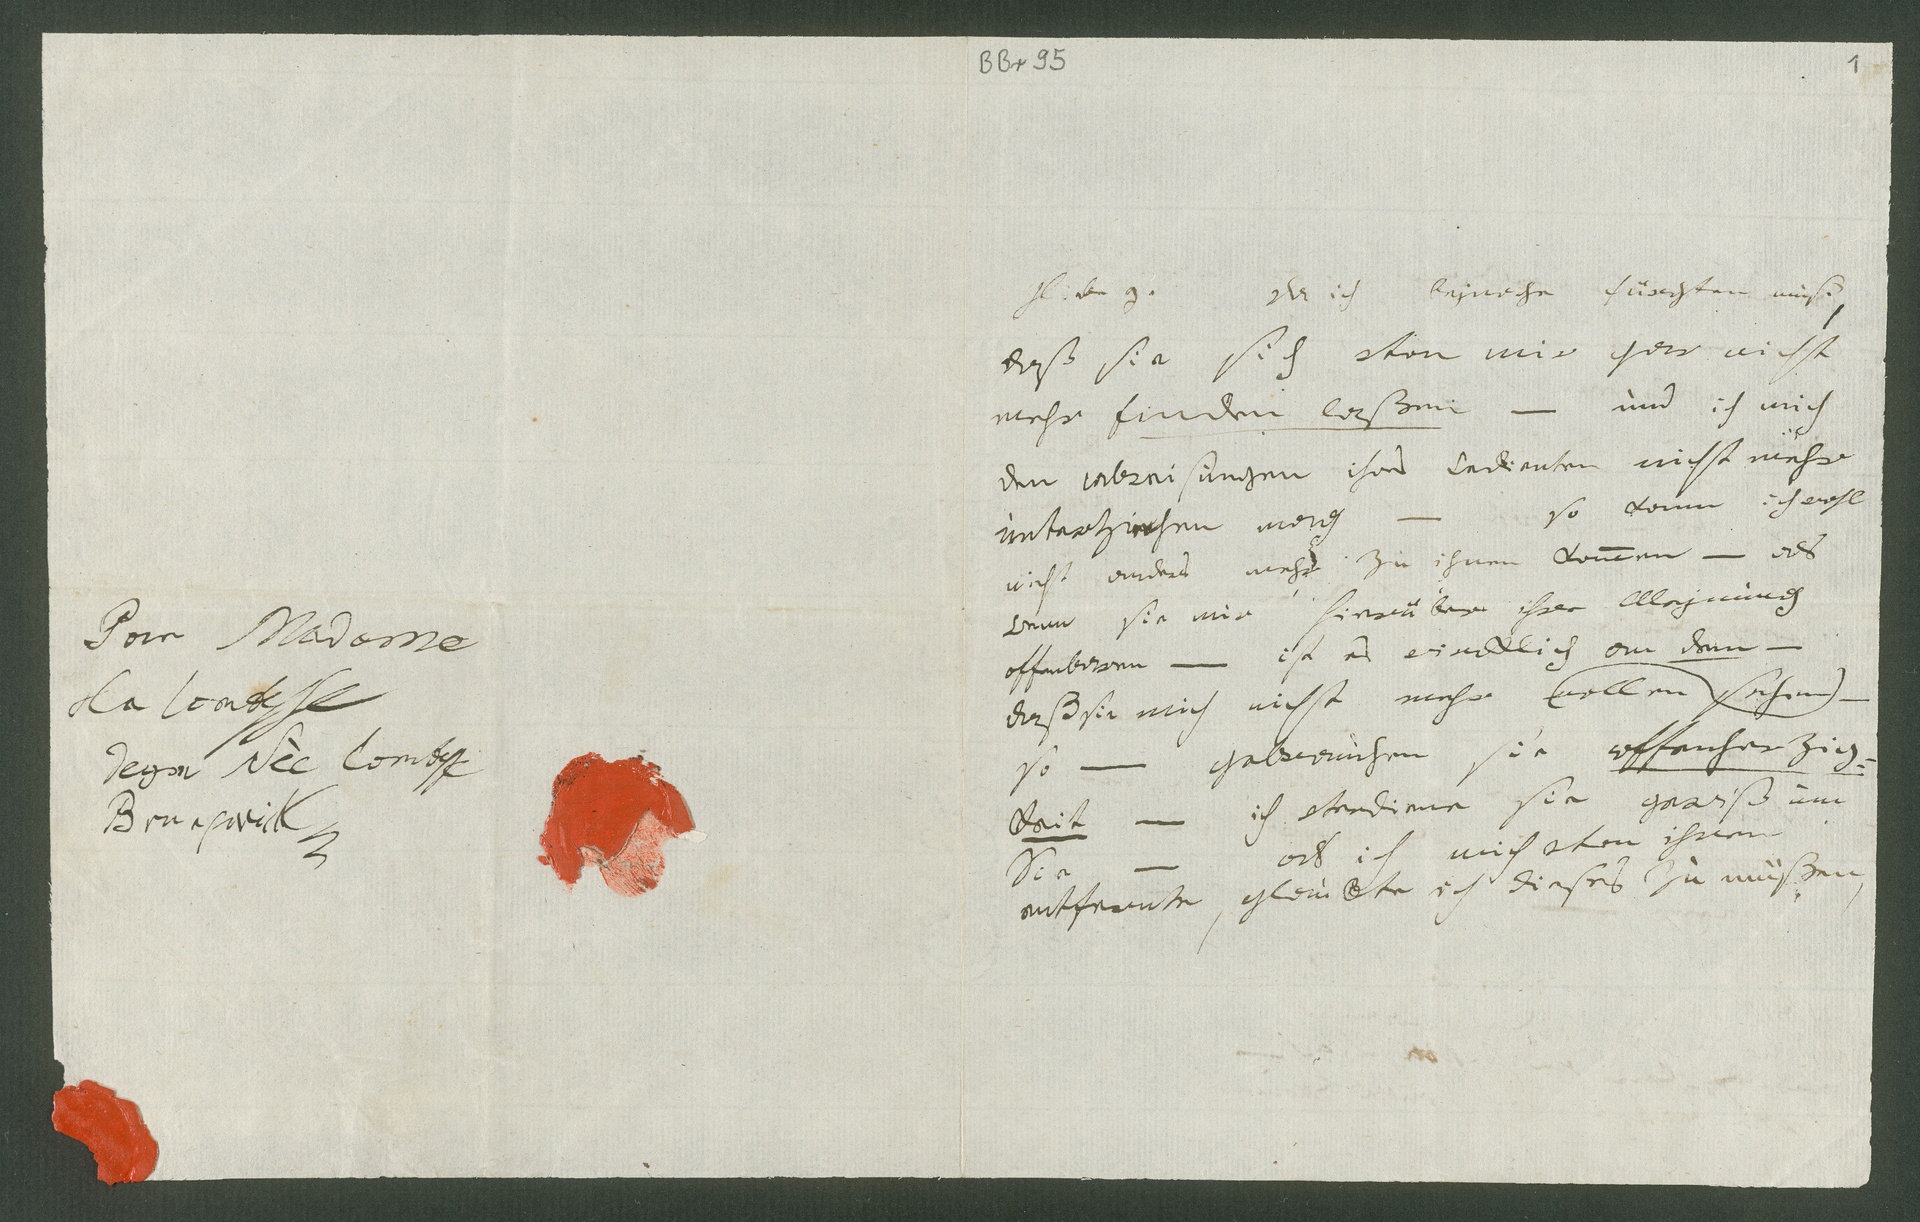 BBr 95
1
Pour Madame
la Comtesse
Deym Née Comtess
Brunswick
liebe J. da ich beynahe fürchten muß,
daß sie sich von mir gar nicht
mehr finden laßen — und ich mich
den abweisungen ihres Bedienten nicht mehr
unterziehen mag — so kann ich wohl
nicht anders mehr zu ihnen kommen — als
wenn sie mir hierüber ihre Meynung
offenbaren — ist es wirklich an dem —
daß sie mich nicht mehr wollen sehen —
so — gebrauchen sie offenherzig=
keit — ich verdiene sie gewiß um
Sie — als ich mich von ihnen
entfernte, glaubte ich dieses zu müßen,